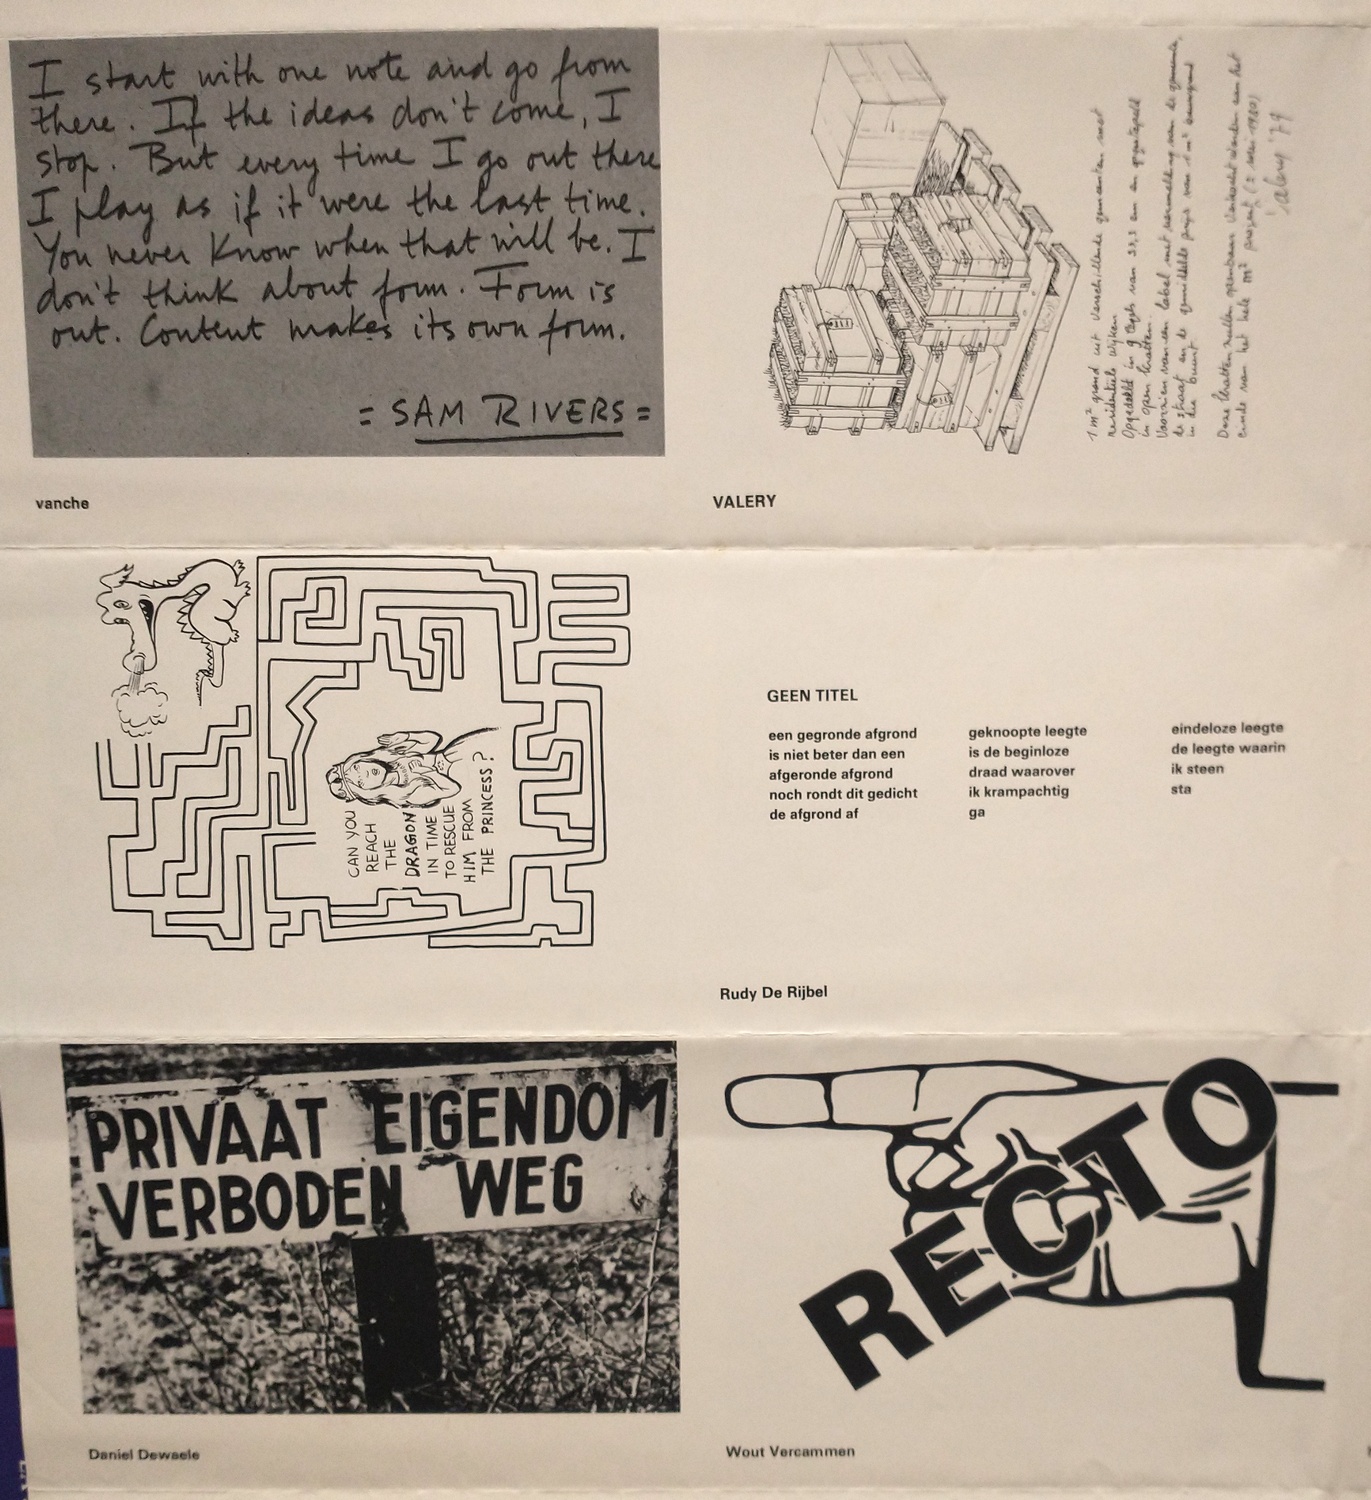 I start with one note and go from
there. If the ideas don't come, I
stop. But every time I go out there
I play as if it were the last time.
You never know when that will be. I
don't think about form. Form is
out. Content makes its own form.
= SAM RIVERS =
vanche
1 m² grond uit verschillende gemeenten met
residentiele wijken
Opgedeeld in 9 tegels van 33,3 cm en gestapeld
in open kratten.
Voorzien van een label met vermelding van de gemeente,
de straat en de gemiddelde prijs van 1 m² bouwgrond
in die buurt
Deze kratten zullen openbaar verkocht worden aan het
einde van het hele m² projekt (2 mei 1980)
Valery '79
VALERY
CAN YOU
REACH
THE
DRAGON
IN TIME
TO RESCUE
HIM FROM
THE PRINCESS?
GEEN TITEL
een gegronde afgrond
is niet beter dan een
afgeronde afgrond
noch rondt dit gedicht
de afgrond af
geknoopte leegte
is de beginloze
draad waarover
ik krampachtig
ga
eindeloze leegte
de leegte waarin
ik steen
sta
Rudy De Rijbel
PRIVAAT EIGENDOM
VERBODEN WEG
Daniel Dewaele
RECTO
Wout Vercammen